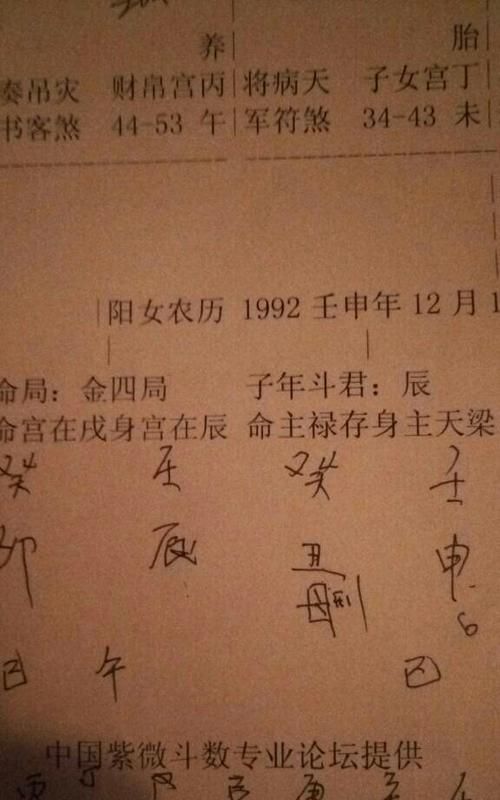 养 胎
奏吊灾 财帛宫丙 将病天 子女宫丁
书客煞 44-53 午 军符煞 34-43 未
阳女农历 1992 壬申年 12 月 1
命局：金四局 子年斗君：辰
命宫在戌身宫在辰 命主禄存身主天梁
癸 壬 癸 壬
卯 辰 丑 申
6
午 巳
中国紫微斗数专业论坛提供